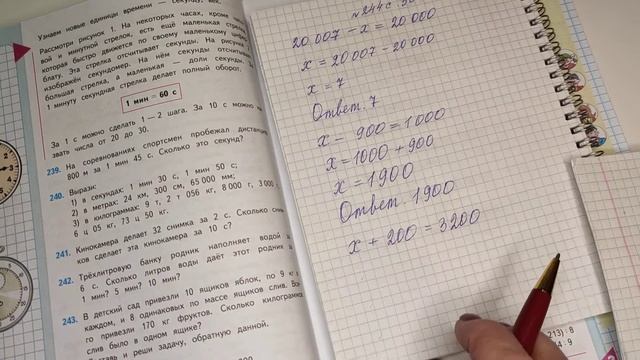 Узнаем новые единицы времени — секунду, век.
Рассмотри рисунок 1. На некоторых часах, кроме
вой и минутной стрелок, есть ещё маленькая стрел
которая быстро движется по своему маленькому циф
блату. Эта стрелка отсчитывает секунды. На рисунке
изображён секундомер. На нём секунды отсчитыв
большая стрелка, а маленькая — доли секунды.
1 минуту секундная стрелка делает полный оборот.
1 мин = 60 с
За 1 с можно сделать 1—2 шага. За 10 с можно на
звать числа от 20 до 30.
239. На соревнованиях спортсмен пробежал дистанц
800 м за 1 мин 45 с. Сколько это секунд?
240. Вырази:
1) в секундах: 1 мин 30 с, 1 мин 50 с;
2) в метрах: 24 км, 300 см, 65 000 мм;
3) в килограммах: 9 т, 2 т 056 кг, 8 000 г, 3 000
6 ц 05 кг, 73 ц 50 кг.
241. Кинокамера делает 32 снимка за 2 с. Сколько сним
ков сделает эта кинокамера за 10 с?
242. Трёхлитровую банку родник наполняет водой
6 с. Сколько литров воды даёт этот родник
1 мин? 5 мин? 10 мин?
243. В детский сад привезли 10 ящиков яблок, по 9 кг
каждом, и 8 одинаковых по массе ящиков слив. Все
го привезли 170 кг фруктов. Сколько килограммо
слив было в одном ящике?
ставь и реши задачу, обратную данной.
№244 с
20 007 − x = 20 000
x = 20 007 - 20000
x = 7
Ответ. 7
x − 900 = 1000
x = 1000 + 900
x = 1900
Ответ. 1900
x + 200 = 3200
213) : 8
4 · 9